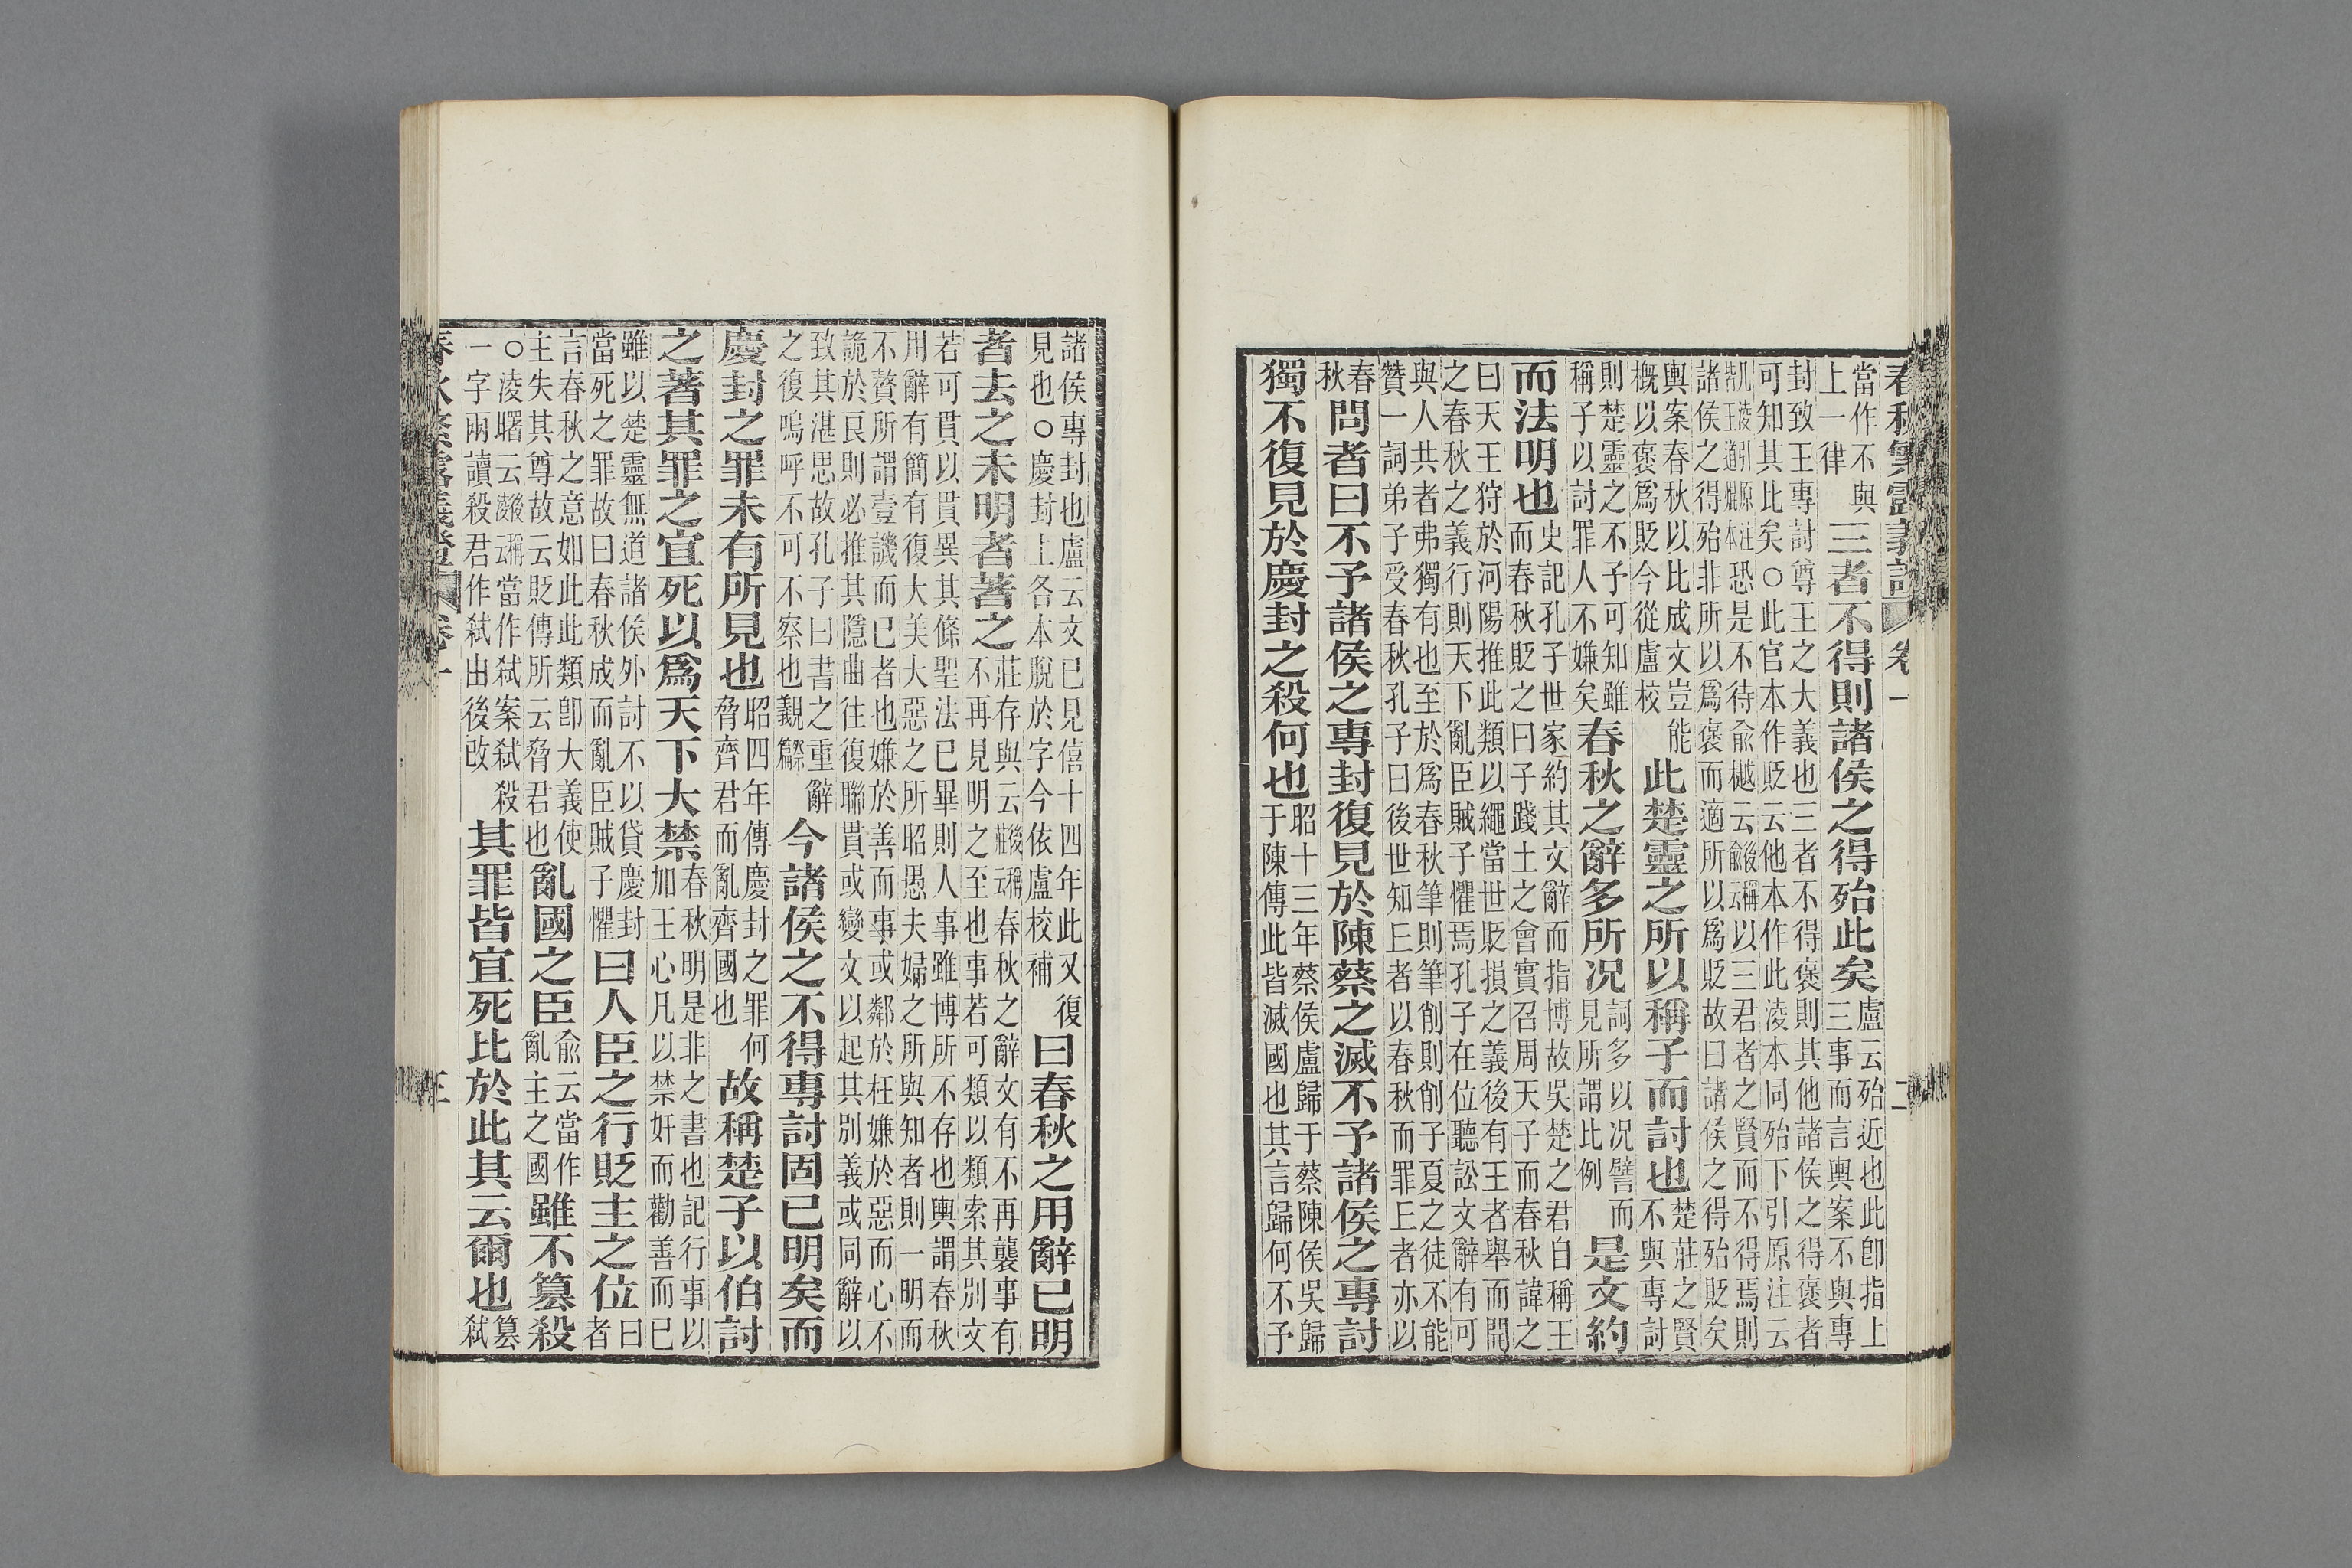 春秋繁露義證 卷一 二
當作不與上一律三者不得則諸侯之得殆此矣盧云殆近也此卽指上三事而言輿案不與專
封致王專討尊王之大義也三者不得褒則其他諸侯之得褒者
可知其比矣○此官本作貶云他本作此淩本同殆下引原注云
凡淩引原注皆王道焜本恐是不待俞樾云後稱俞云以三君者之賢而不得焉則
諸侯之得殆非所以爲褒而適所以爲貶故曰諸侯之得殆貶矣
輿案春秋以比成文豈能概以褒爲貶今從盧校此楚靈之所以稱子而討也楚莊之賢不與專討
則楚靈之不予可知雖稱子以討罪人不嫌矣春秋之辭多所况詞多以况譬而見所謂比例是文約
而法明也史記孔子世家約其文辭而指博故吳楚之君自稱王而春秋貶之曰子踐土之會實召周天子而春秋諱之
曰天王狩於河陽推此類以繩當世貶損之義後有王者舉而開
之春秋之義行則天下亂臣賊子懼焉孔子在位聽訟文辭有可
與人共者弗獨有也至於爲春秋筆則筆削則削子夏之徒不能
贊一詞弟子受春秋孔子曰後世知丘者以春秋而罪丘者亦以
春秋問者曰不予諸侯之專封復見於陳蔡之滅不予諸侯之專討
獨不復見於慶封之殺何也昭十三年蔡侯盧歸于蔡陳侯吳歸于陳傳此皆滅國也其言歸何不予
諸侯專封也盧云文已見僖十四年此又復見也○慶封上各本脫於字今依盧校補曰春秋之用辭已明
者去之未明者著之莊存與云後稱莊云春秋之辭文有不再襲事有不再見明之至也事若可類以類索其別文
若可貫以貫異其條聖法已畢則人事雖博所不存也輿謂春秋
用辭有簡有復大美大惡之所昭愚夫婦之所與知者則一明而
不贅所謂壹譏而已者也嫌於善而事或鄰於枉嫌於惡而心不
詭於良則必推其隱曲往復聯貫或變文以起其別義或同辭以
致其湛思故孔子曰書之重辭之復嗚呼不可不察也今諸侯之不得專討固已明矣而
慶封之罪未有所見也昭四年傳慶封之罪何脅齊君而亂齊國也故稱楚子以伯討
之著其罪之宜死以爲天下大禁春秋明是非之書也記行事以加王心凡以禁奸而勸善而已
雖以楚靈無道諸侯外討不以貸慶封當死之罪故曰春秋成而亂臣賊子懼曰人臣之行貶主之位曰者
言春秋之意如此此類卽大義使主失其尊故云貶傳所云脅君也亂國之臣俞云當作亂主之國雖不篡殺
○淩曙云後稱淩云當作弑案弑殺一字兩讀殺君作弑由後改其罪皆宜死比於此其云爾也篡弑
春秋繁露義證 卷一 三